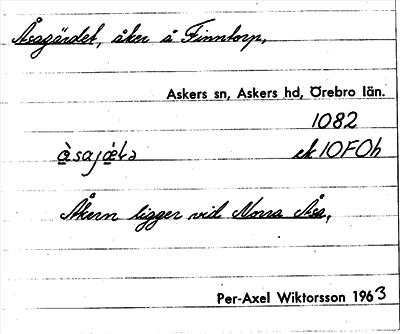 Åsagärdet, åker å Finntorp,
Askers sn, Askers hd, Örebro län.
1082
ek 10F0h
Åkern ligger vid Norra Åsa,
Per-Axel Wiktorsson 1963